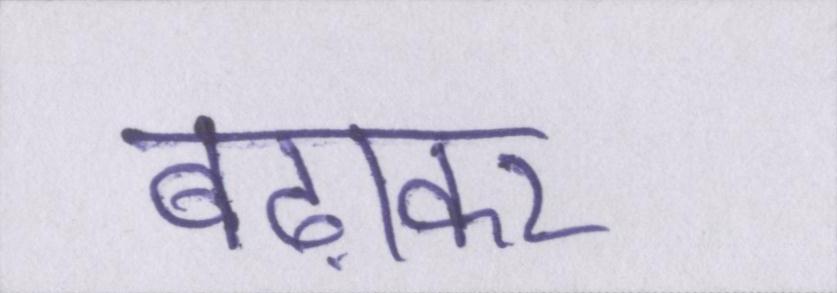 बढ़ाकर